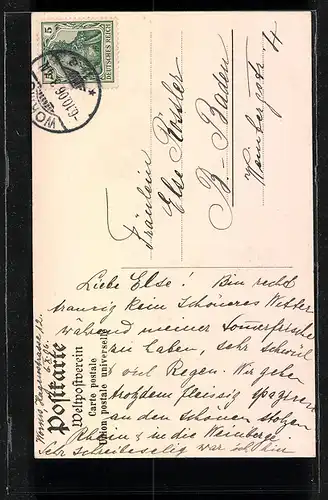 5
DEUTSCHES REICH
WORMS
-6.10.06
Fräulein
Else Rösler
B.-Baden
Weinbergstr. 4
Postkarte
Weltpostverein
Carte postale
Union postale universelle
Worms, 12.
6/X 06.
Liebe Else! Bin recht
traurig kein schöneres Wetter
während meiner Sommerfrische
zu haben, sehr schwül
& viel Regen. Wir gehen
trotzdem fleissig spazieren
an den schönen stolzen
Rhein & in die Weinberge.
Sehr schreibeselig war ich hin